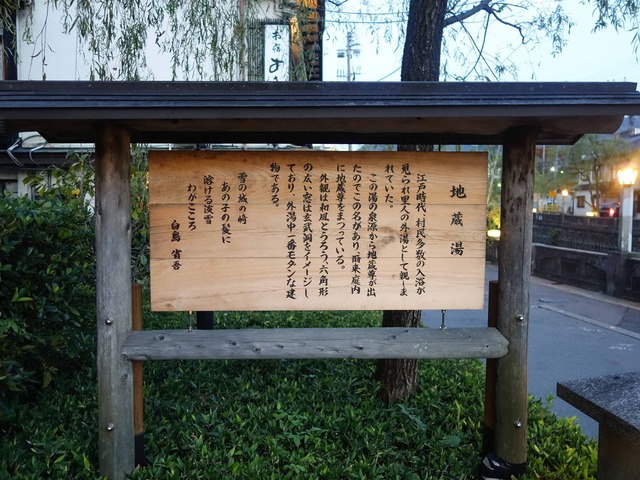 地蔵湯
江戸時代、村民多数の入浴が
見られ里人の外湯として親しま
れていた。
この湯の泉源から地蔵尊が出
たのでこの名があり、爾来、庭内
に地蔵尊をまつっている。
外観は和風とうろう、六角形
の広い窓は玄武洞をイメージし
ており、外湯中一番モダンな建
物である。
雪の城の崎
あの子の髪に
溶ける淡雪
わがこころ
白鳥省吾